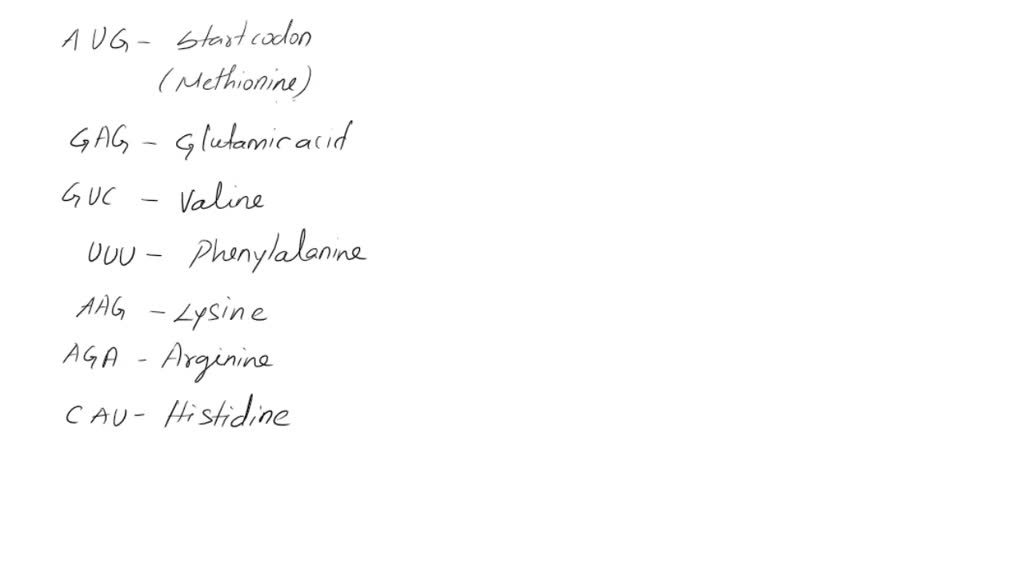 AUG - Start codon
(Methionine)
GAG - Glutamic acid
GUC - Valine
UUU - Phenylalanine
AAG - Lysine
AGA - Arginine
CAU - Histidine